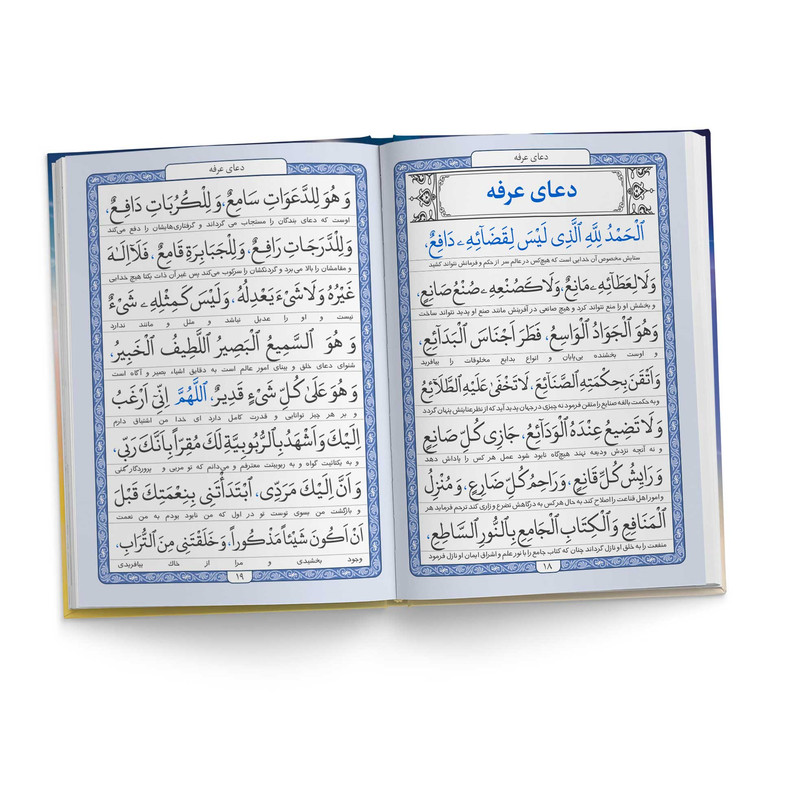 دعای عرفه
دعای عرفه
اَلْحَمْدُ لِلّٰهِ الَّذِی لَیْسَ لِقَضَآئِهِ دَافِعٌ،
ستایش مخصوص آن خدایی است که هیچ‌کس در عالم سر از حکم و فرمانش نتواند کشید
وَلَا لِعَطَآئِهِ مَانِعٌ، وَلَا کَصُنْعِهِ صُنْعُ صَانِعٍ،
و بخشش او را منع نتواند کرد و هیچ صانعی در آفرینش مانند صنع او پدید نتواند ساخت
وَهُوَ الْجَوَادُ الْوَاسِعُ، فَطَرَ اَجْنَاسَ الْبَدَآئِعِ،
و اوست بخشنده بی‌پایان و انواع بدایع مخلوقات را بیافرید
وَاَتْقَنَ بِحِکْمَتِهِ الصَّنَآئِعَ، لَا تَخْفَیٰ عَلَیْهِ الطَّلَآئِعُ
و به حکمت بالغه صنایع را متقن فرمود نه چیزی در جهان پدید آید که از نظر عنایتش پنهان گردد
وَلَا تَضِیعُ عِنْدَهُ الْوَدَآئِعُ، جَازِی کُلِّ صَانِعٍ
و نه آنچه نزدش ودیعه نهند هیچ‌گاه نابود شود عمل هر کس را پاداش دهد
وَرَایِشُ کُلِّ قَانِعٍ، وَرَاحِمُ کُلِّ ضَارِعٍ، وَمُنْزِلُ
و امور اهل قناعت را اصلاح کند به حال هر کس به درگاهش تضرع و زاری کند ترحم فرماید هر
الْمَنَافِعِ وَالْکِتَابِ الْجَامِعِ بِالنُّورِ السَّاطِعِ،
منفعت را به خلق او نازل گرداند چنان که کتاب جامع را با نور علم و اشراق ایمان او نازل فرمود
۱۸
دعای عرفه
وَ هُوَ لِلدَّعَوَاتِ سَامِعٌ، وَ لِلْکُرُبَاتِ دَافِعٌ،
اوست که دعای بندگان را مستجاب می گرداند و گرفتاری‌هایشان را دفع می‌کند
وَلِلدَّرَجَاتِ رَافِعٌ، وَلِلْجَبَابِرَةِ قَامِعٌ، فَلَآ اِلٰهَ
و مقامشان را بالا می‌برد و گردنکشان را سرکوب می‌کند پس غیر آن ذات یکتا هیچ خدایی
غَیْرُهُ وَلَا شَیْءَ یَعْدِلُهُ، وَلَیْسَ کَمِثْلِهِ شَیْءٌ
نیست و او را عدیل نباشد و مثل و مانند ندارد
وَ هُوَ السَّمِیعُ الْبَصِیرُ اللَّطِیفُ الْخَبِیرُ،
شنوای دعای خلق و بینای امور عالم است به دقایق اشیاء بصیر و آگاه است
وَهُوَ عَلَیٰ کُلِّ شَیْءٍ قَدِیرٌ، اَللّٰهُمَّ اِنِّی اَرْغَبُ
و بر هر چیز توانایی و قدرت کامل دارد ای خدا من اشتیاق دارم
اِلَیْكَ وَاَشْهَدُ بِالرُّبُوبِیَّةِ لَكَ مُقِرّاً بِاَنَّكَ رَبِّی،
و به یکتائیت گواه و به ربوبیتت معترفم و می‌دانم که تو مربی و پروردگار کنی
وَاَنَّ اِلَیْكَ مَرَدِّی، اِبْتَدَأْتَنِی بِنِعْمَتِكَ قَبْلَ
و بازگشت من بسوی توست تو در اول که من نابود بودم به من نعمت
اَنْ اَکُونَ شَیْئاً مَذْکُوراً، وَخَلَقْتَنِی مِنَ التُّرَابِ،
وجود بخشیدی و مرا از خاك بیافریدی
۱۹